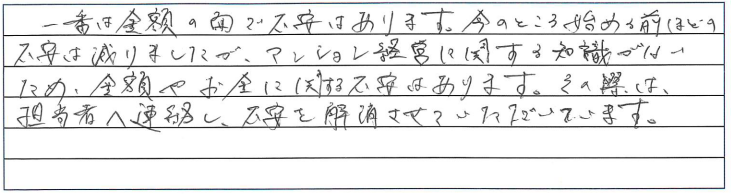 一番は金額の面で不安はあります。今のところ始める前ほどの
不安は減りましたが、マンション経営に関する知識がない
ため、金額やお金に関する不安はあります。その際は、
担当者へ連絡し、不安を解消させていただいています。